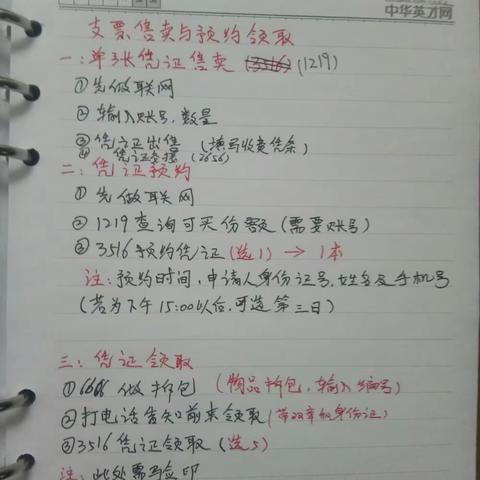 中华英才网
支票售卖与预约领取
一:单张凭证售卖 (3516) (1219)
①先做联网
②输入账号、数量
③凭证出售 (填写收费凭条)
④凭证交接 (2656)
二:凭证预约
①先做联网
②1219查询可买份额(需要账号)
③3516预约凭证(选1) → 1本
注:预约时间,申请人身份证号、姓名及手机号
(若为下午15:00以后,可选第三日)
三:凭证领取
①6666做拆包 (物品拆包,输入编号)
②打电话告知前来领取(带双章和身份证)
③3516凭证领取(选5)
注:此处需写金印